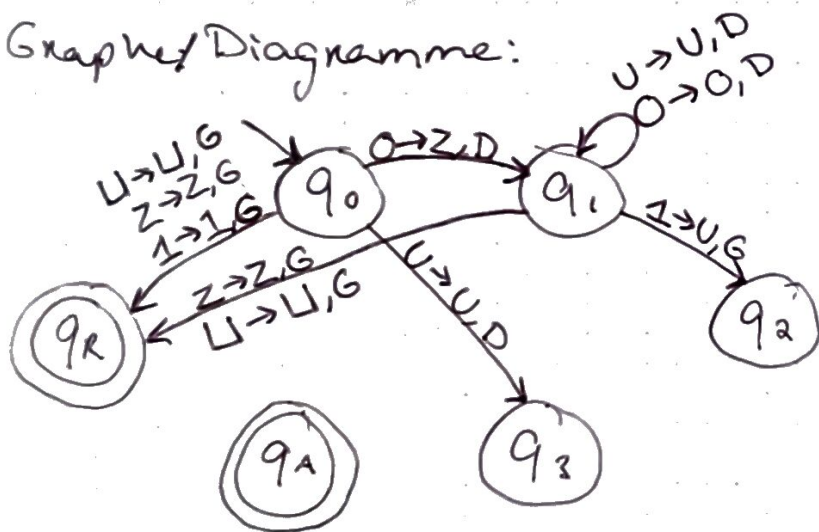 Graphe/Diagramme:
U→U,D
0→0,D
⊔→⊔,G
Z→Z,G
1→1,G
q0
0→Z,D
q1
1→U,G
Z→Z,G
⊔→⊔,G
U→U,D
qR
q2
qA
q3